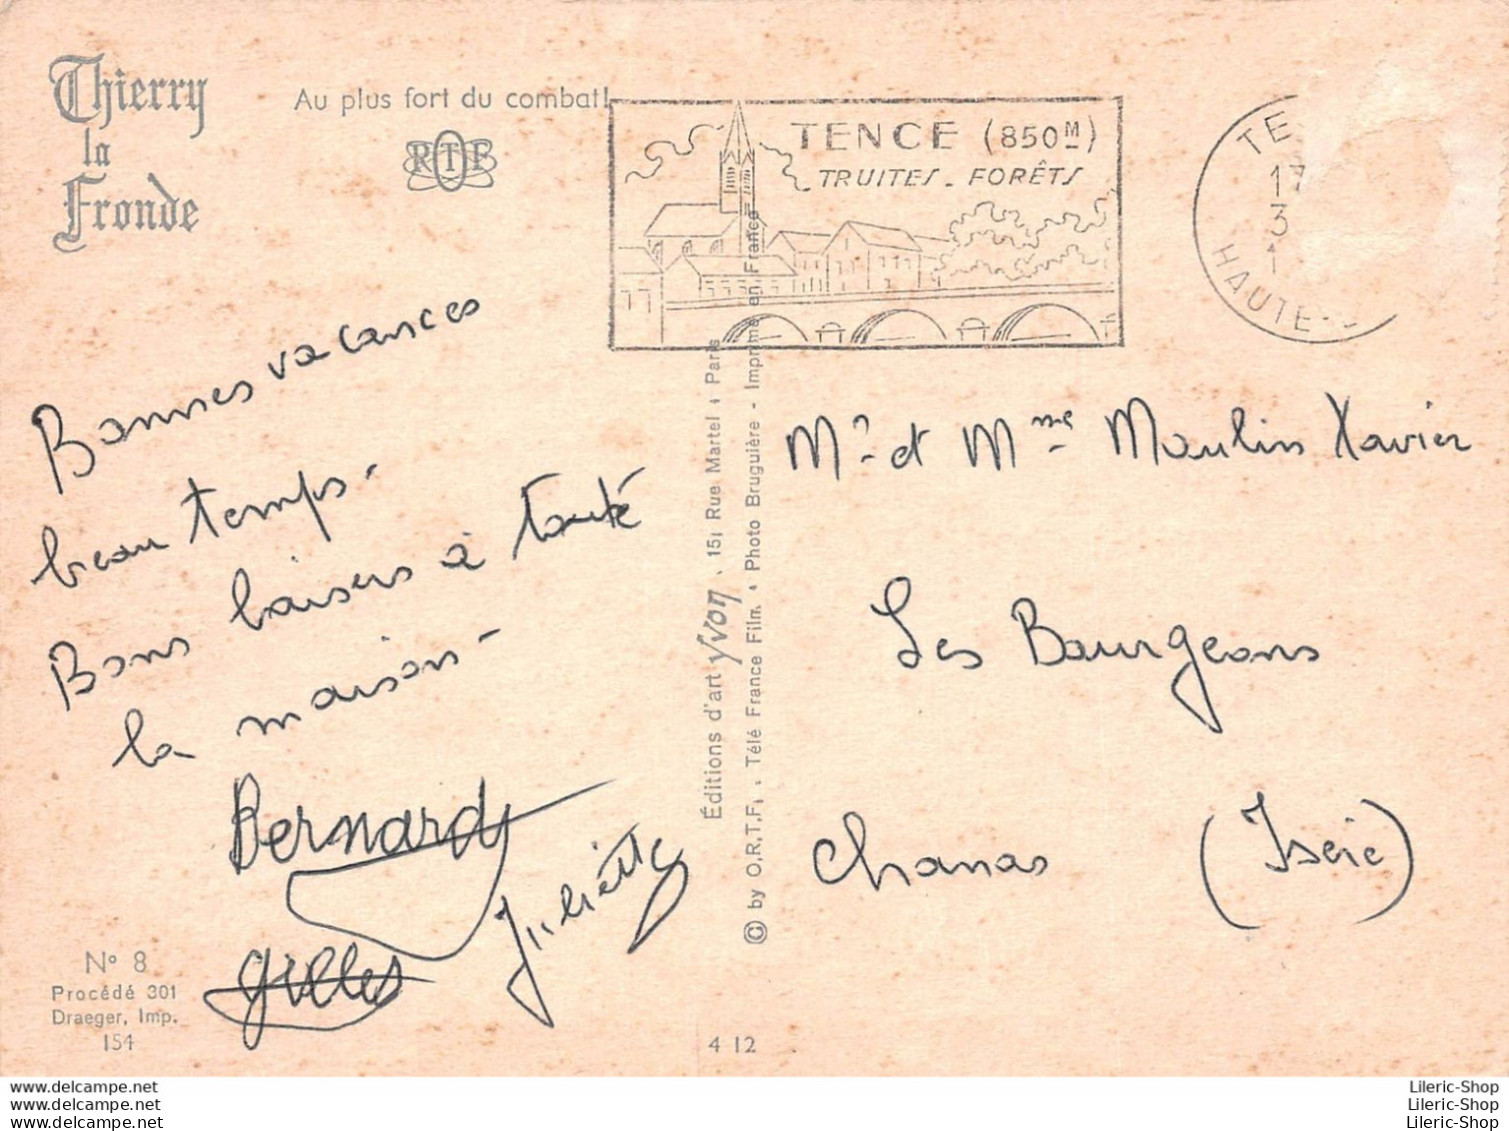 Thierry
la
Fronde
Au plus fort du combat!
RTF
TENCE (850M)
TRUITES - FORÊTS
TE
17
3
1
HAUTE-
Bonnes vacances
beau temps-
Bons baisers à toute
la maison-
Bernard
Juliette
Gilles
Mr et Mme Moulin Xavier
Les Bourgeons
Chanas (Isère)
Éditions d'art yvon, 15, Rue Martel, Paris
© by O.R.T.F., Télé France Film, Photo Bruguière - Imprimé en France
N° 8
Procédé 301
Draeger, Imp.
154
4 12
delcampe.net
delcampe.net
delcampe.net
Lileric-Shop
Lileric-Shop
Lileric-Shop